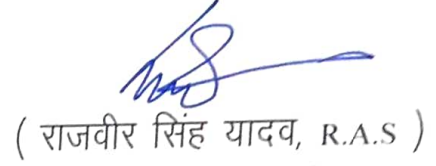 ( राजवीर सिंह यादव, R.A.S )